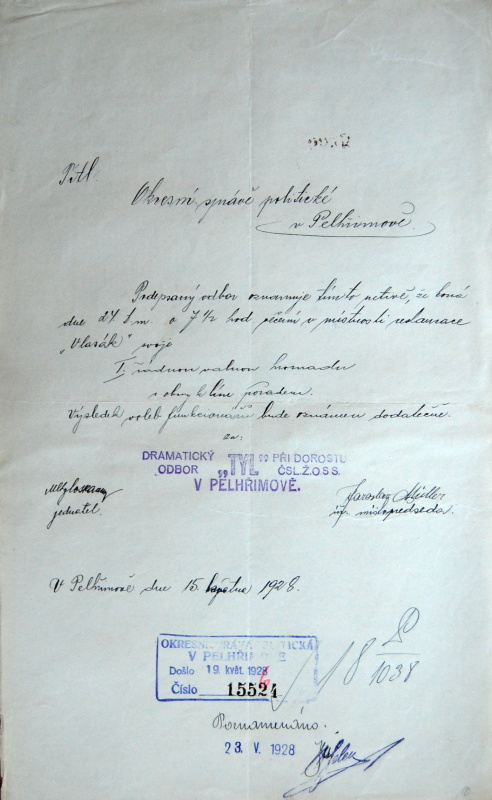 P.T.
Okresní správě politické
v Pelhřimově.
Podepsaný odbor oznamuje tímto uctivě, že koná
dne 27 t. m. o 7½ hod. večerní v místnosti restaurace
„Vlasák" svoji
I. řádnou valnou hromadu
s obvyklým pořadem.
Výsledek voleb funkcionářů bude oznámen dodatečně.
za:
DRAMATICKÝ ODBOR „TYL" PŘI DOROSTU ČSL.Ž.O.S.S.
V PELHŘIMOVĚ.
jednatel.
Jaroslav Müller
místopředseda.
V Pelhřimově dne 15. května 1928.
OKRESNÍ SPRÁVA POLITICKÁ
V PELHŘIMOVĚ
Došlo 19. květ. 1928
Číslo 15524
18 P
1038
Poznamenáno.
23. V. 1928